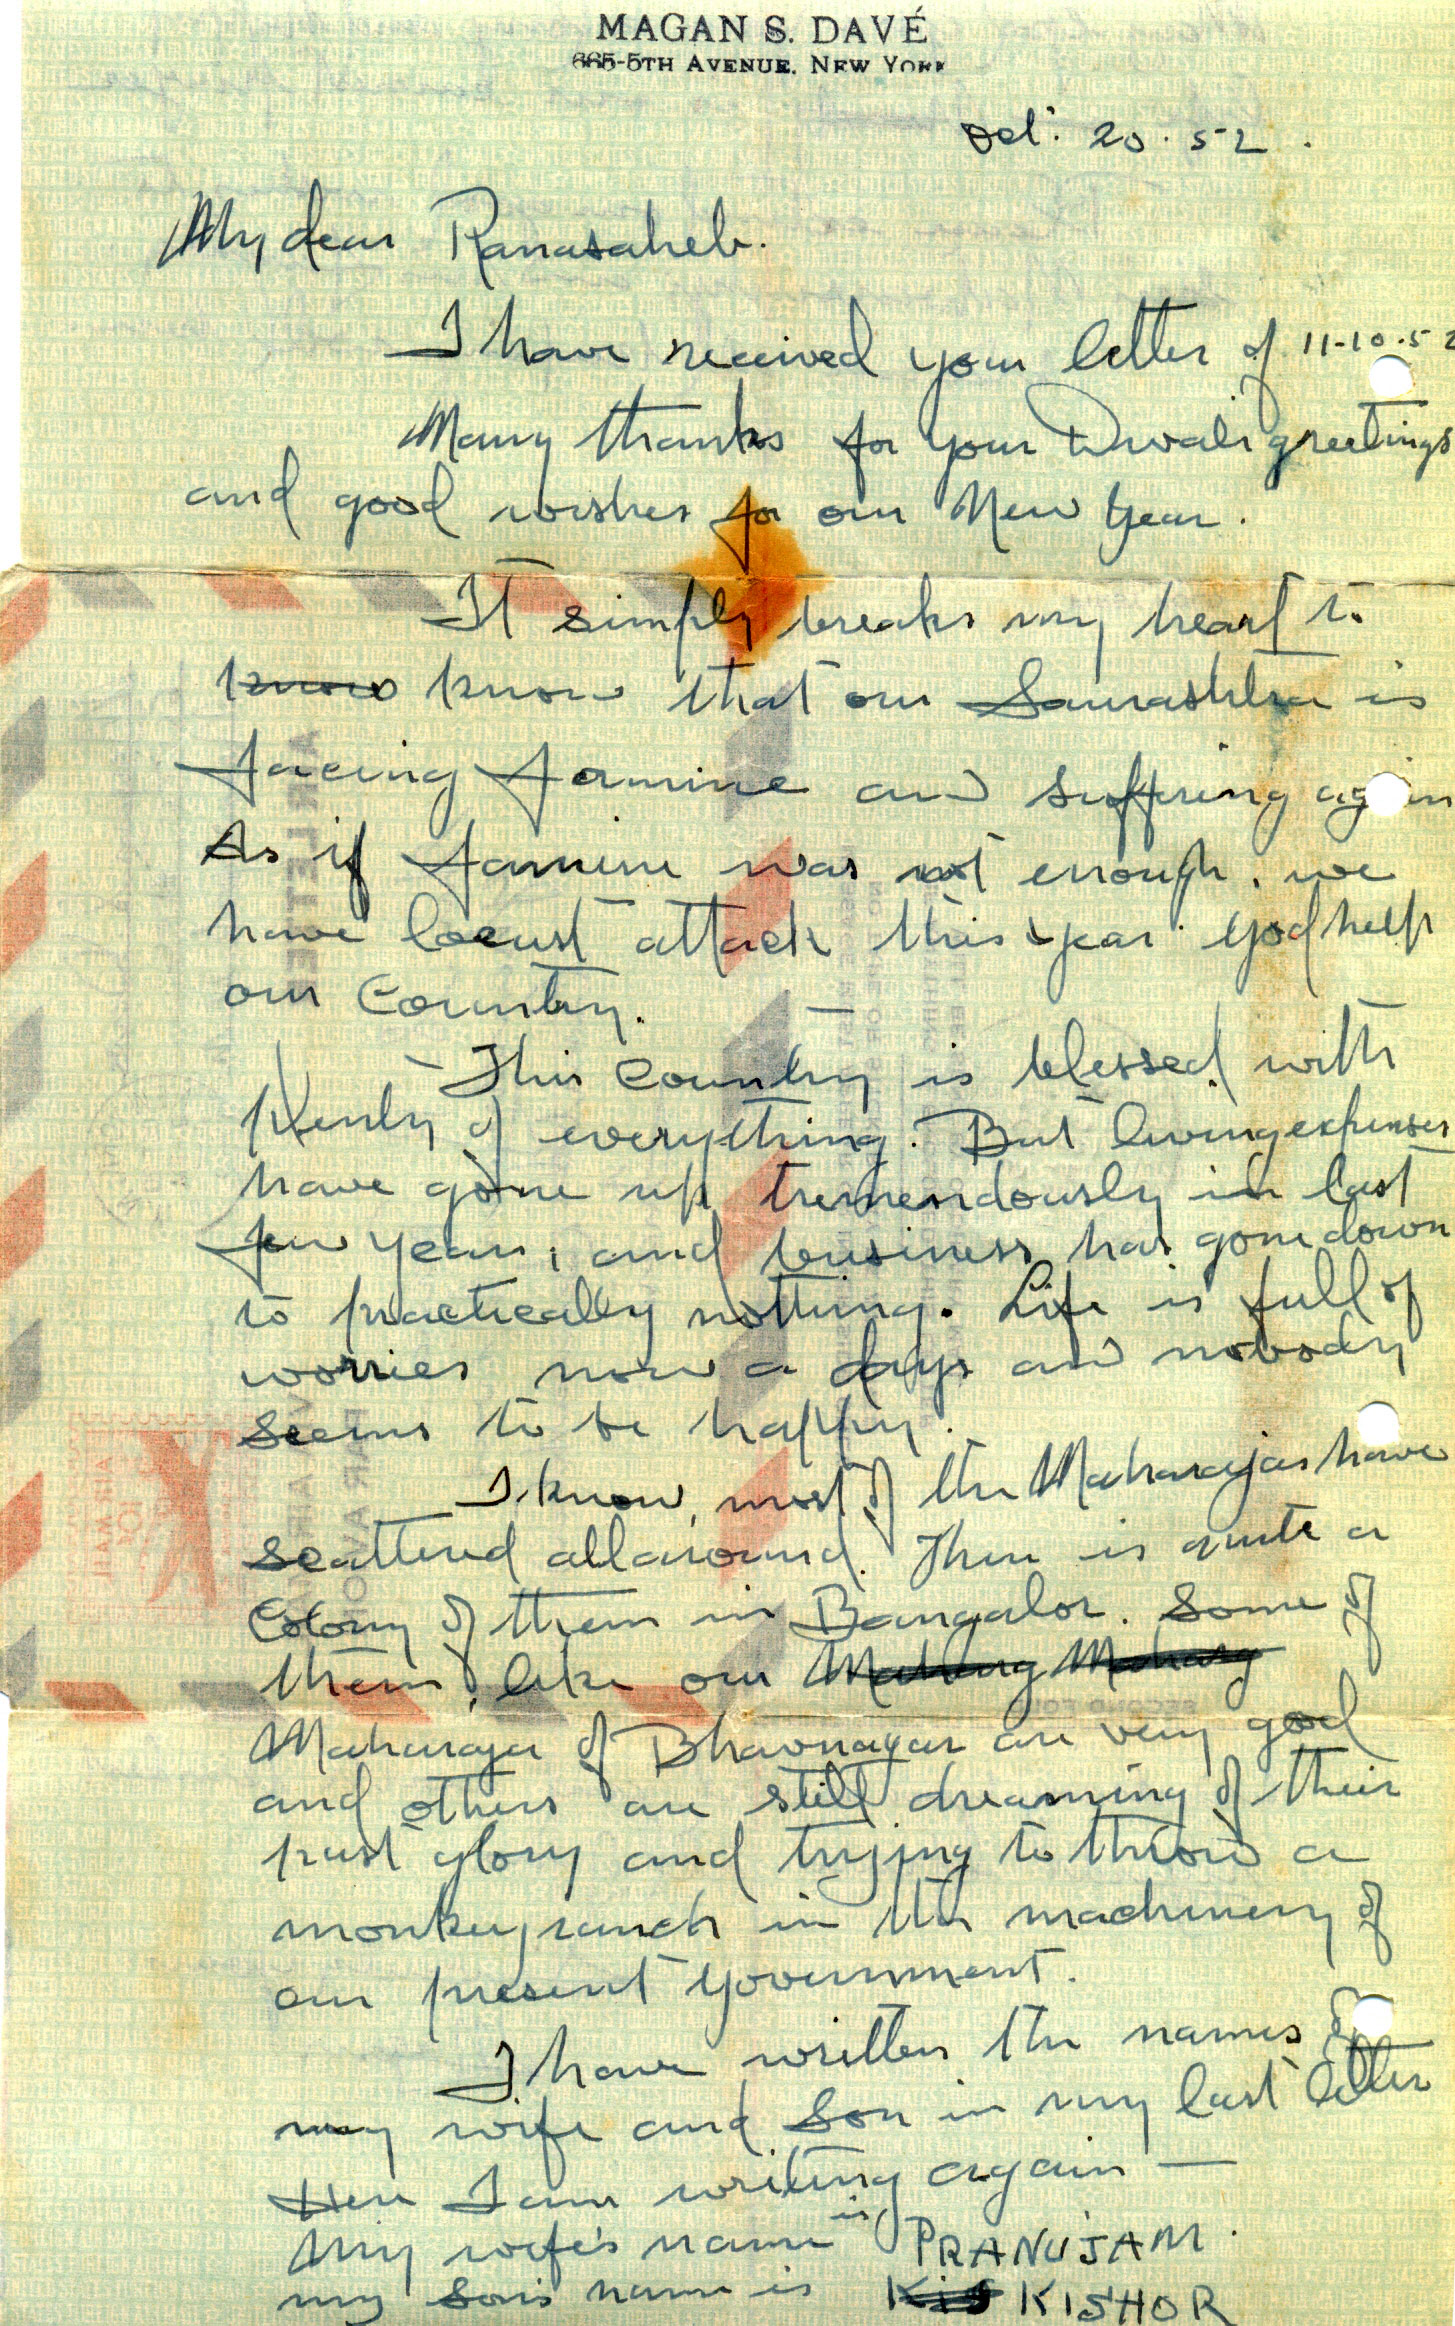 MAGAN S. DAVÉ
665-5TH AVENUE, NEW YORK
Oct: 20. 52.
My dear Ranasaheb.
I have received your letter of 11-10-52
Many thanks for your Diwali greetings
and good wishes for our New Year.
It simply breaks my heart to
know know that our Saurashtra is
facing famine and suffering again
As if famine was not enough, we
have locust attack this year. God help
our Country.
This Country is blessed with
Plenty of everything. But living expenses
have gone up tremendously in last
few years, and business has gone down
to practically nothing. Life is full of
worries now a days and nobody
seems to be happy.
I know, most of the Maharajas have
scattered all around. There is quite a
Colony of them in Bangalor. Some of
them, like our Maharaj Maharaj
Maharaja of Bhavnagar are very good
and others are still dreaming of their
past glory and trying to throw a
monkey ranch in the machinery of
our present Government.
I have written the names of
my wife and Son in my last letter
Here I am writing again —
My wife's name is PRANUJAM.
my son's name is Kis KISHOR